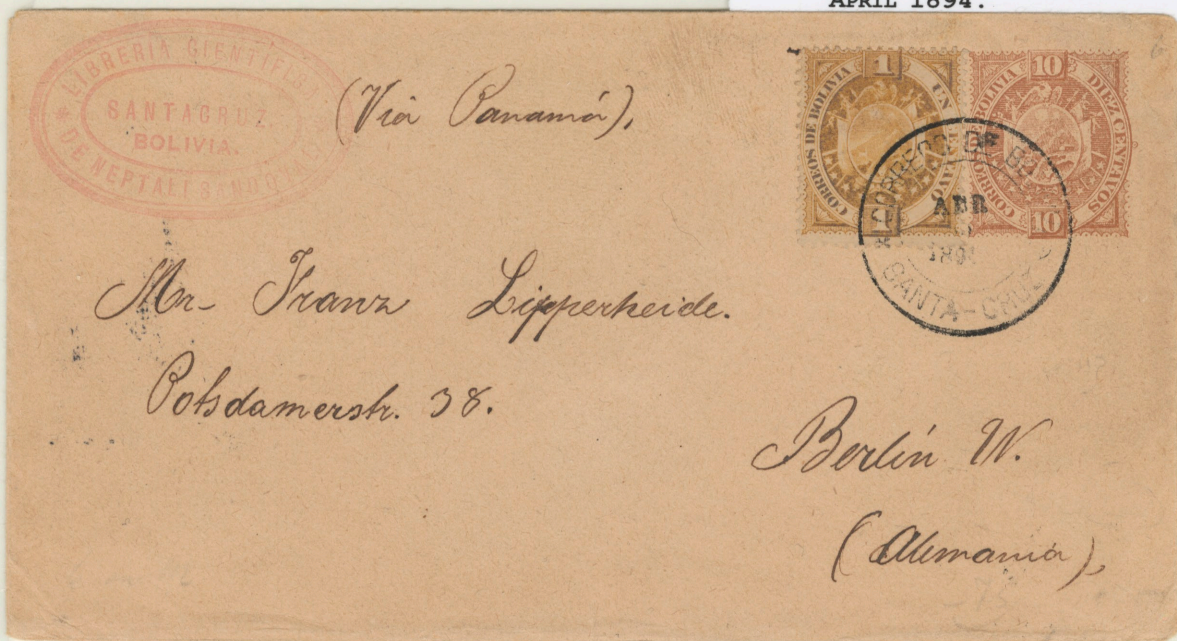 APRIL 1894.
LIBRERÍA CIENTÍFICA
SANTACRUZ
BOLIVIA.
DE NEPTALÍ SANDOVAL
(Viâ Panamá),
1
UN
CORREOS DE BOLIVIA
1
10
DIEZ CENTAVOS
CORREOS BOLIVIA
10
CORREOS DE
ABR
SANTA-CRUZ
Mr- Franz Lipperheide.
Potsdamerstr. 38.
Berlín W.
(Alemania),